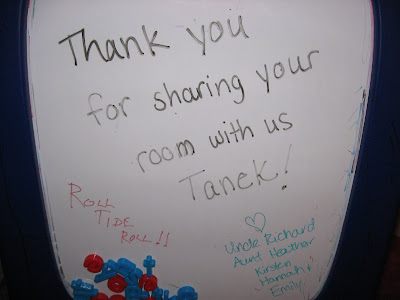 Thank you
for sharing your
room with us
Tanek!
ROLL
TIDE
ROLL!!
Uncle Richard
Aunt Heather
Kirsten
Hannah &
Emily